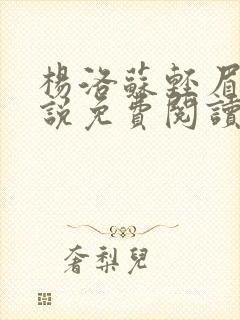 楊洛蘇輕眉
說免費閱讀
奢梨兒